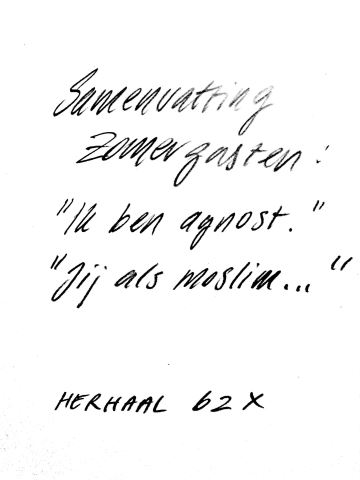 Samenvatting
Zomergasten:
"Ik ben agnost."
"Jij als moslim..."
HERHAAL 62X